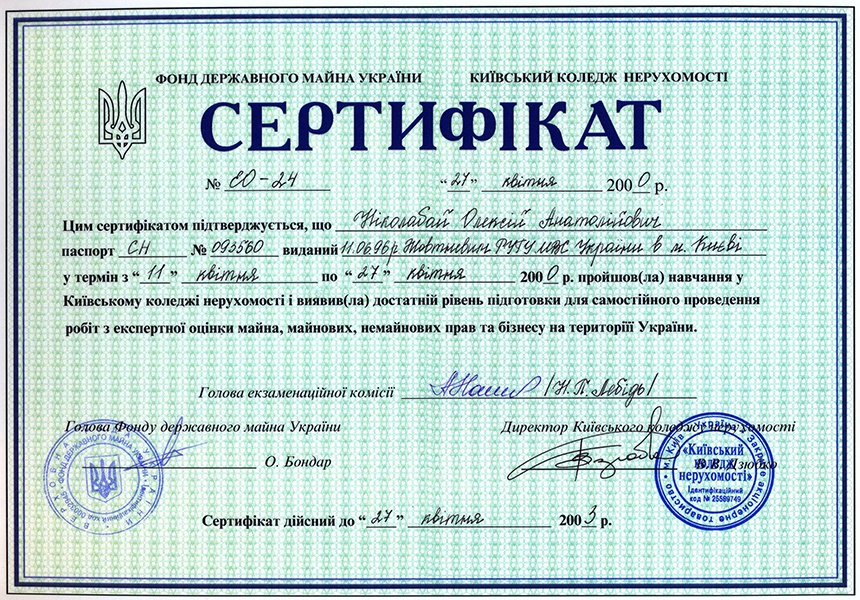 ФОНД ДЕРЖАВНОГО МАЙНА УКРАЇНИ КИЇВСЬКИЙ КОЛЕДЖ НЕРУХОМОСТІ
СЕРТИФІКАТ
№ ЕО-24 "27" квітня 2000 р.
Цим сертифікатом підтверджується, що Ніколабай Олексій Анатолійович
паспорт СН № 093560 виданий 11.06.96р Жовтневим РУГУ МВС України в м. Києві
у термін з "11" квітня по "27" квітня 2000 р. пройшов(ла) навчання у
Київському коледжі нерухомості і виявив(ла) достатній рівень підготовки для самостійного проведення
робіт з експертної оцінки майна, майнових, немайнових прав та бізнесу на територіїї України.
Голова екзаменаційної комісії /Н.П. Лебідь/
Голова Фонду державного майна України
Директор Київського коледжу нерухомості
О. Бондар
«Київський
коледж
нерухомості»
Ідентифікаційний
код № 25589749
м. Київ • Україна • Закрите акціонерне товариство
ФОНД ДЕРЖАВНОГО МАЙНА УКРАЇНИ
Сертифікат дійсний до "27" квітня 2003 р.